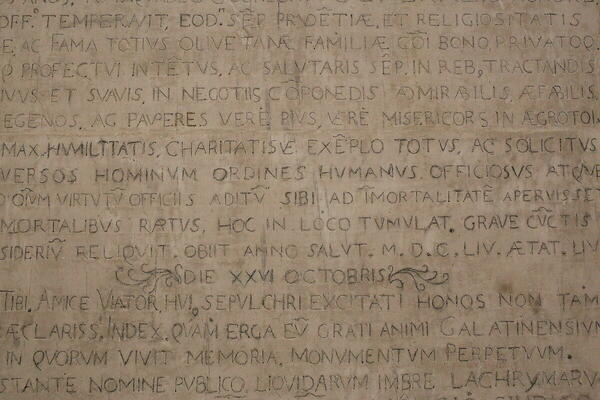 OFF. TEMPERAVIT, EOD. SẼP PRVDẼTIÆ, ET RELIGIOSITATIS
E, AC FAMA TOTIVS OLIVETANÆ FAMILIÆ, CÕI BONO, PRIVATOQ.
PROFECTVI INTẼTVS, AC SALVTARIS SẼP. IN REB, TRACTANDIS
IVVS ET SVAVIS, IN NEGOTIIS CÕPONEDIS ADMIRABILIS, ÆFABILIS
EGENOS, AC PAVPERES VERE PIVS, VERE MISERICORS IN ÆGROTOS
MAX. HVMILITATIS, CHARITATISVE EXẼPLO TOTVS, AC SOLICITVS
VERSOS HOMINVM ORDINES HVMANVS OFFICIOSVS ATQVE
OĨVM VIRTVTŨ OFFICIIS ADITŨ SIBI AD ĨMORTALITATẼ APERVISSET
MORTALIBVS RAPTVS, HOC IN LOCO TVMVLAT. GRAVE CVC̃TIS
SIDERIŨ RELIQVIT. OBIIT ANNO SALVT. M. D. C. LIV. ÆTAT. LIV
DIE XXVI OCTOBRIS
TIBI, AMICE VIATOR, HVI, SEPVLCHRI EXCITATI HONOS NON TAM
ÆCLARISS, INDEX, QVAM ERGA EŨ GRATI ANIMI GALATINENSIVM
IN QVORVM VIVIT MEMORIA, MONVMENTVM PERPETVVM.
STANTE NOMINE PVBLICO, LIQVIDARVM IMBRE LACHRYMARV